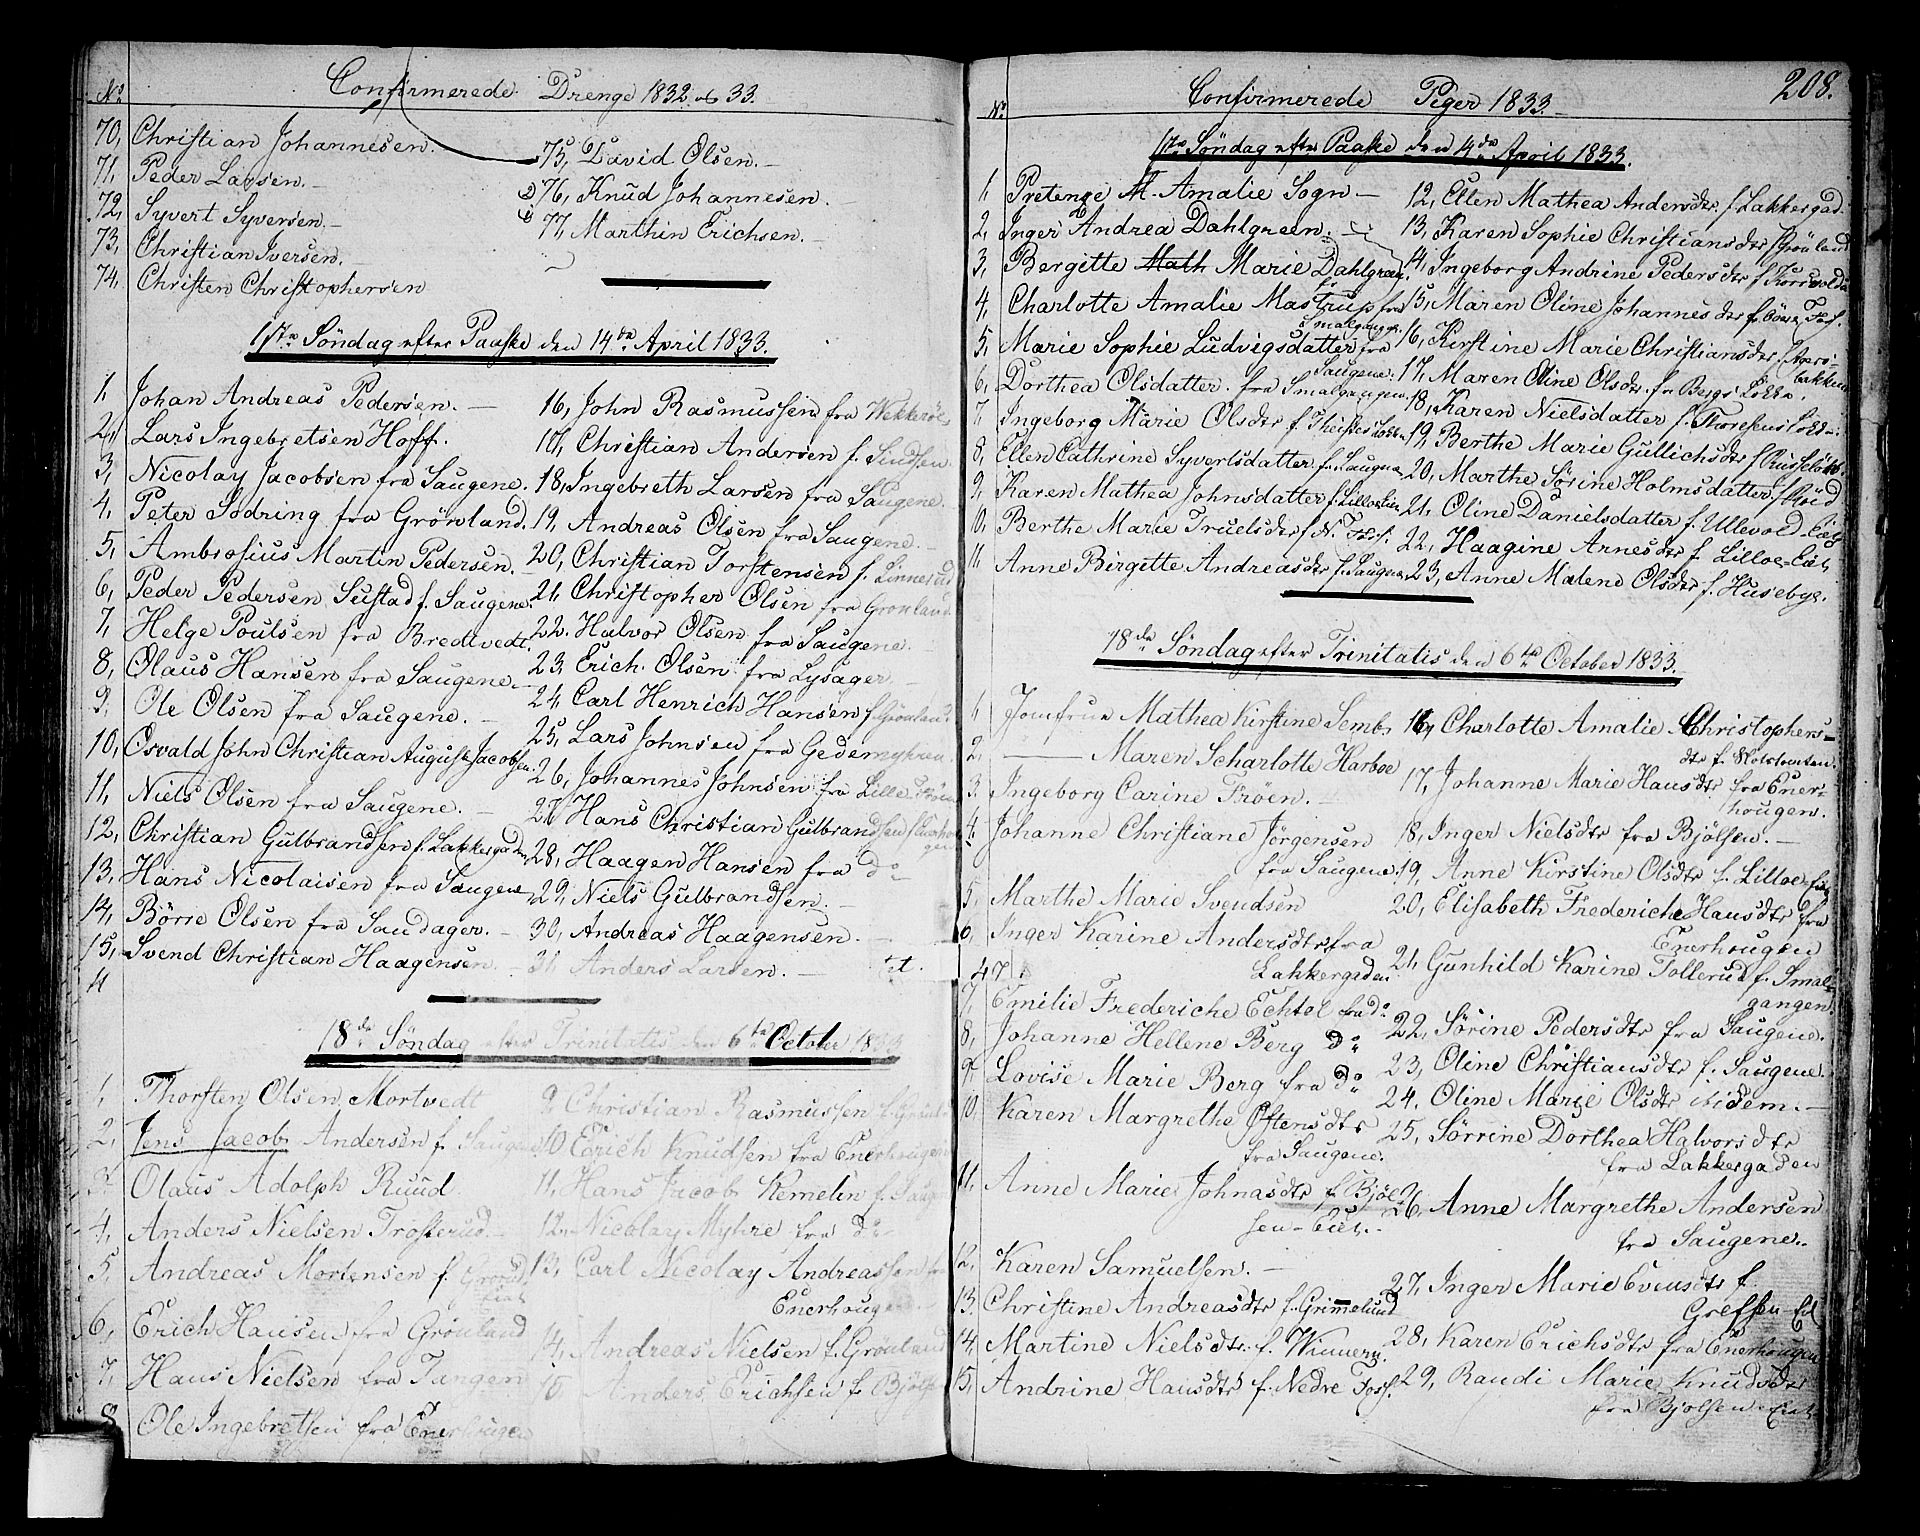 No. Confirmerede Drenge 1832 og 33.
70, Christian Johannesen.
71, Peder Larsen.
72, Syvert Syversen.
73, Christian Iversen.
74, Christen Christophersen
75, David Olsen.
76, Knud Johannesen.
77, Marthin Erichsen.
1ste Søndag efter Paaske den 14de April 1833.
1, Johan Andreas Pedersen.
2, Lars Ingebretsen Hoff.
3, Nicolay Jacobsen fra Saugene.
4, Peter Sodring fra Grønland.
5, Ambrosius Martin Pedersen.
6, Peder Pedersen Sustad f. Saugene.
7, Helge Poulsen fra Bredtvedt.
8, Olaus Hansen fra Saugene.
9, Ole Olsen fra Saugene.
10, Osvald John Christian August Jacobsen.
11, Niels Olsen fra Saugene.
12, Christian Gulbrandsen f. Lakkergaden
13, Hans Nicolaisen fra Saugene
14, Børre Olsen fra Sandager.
15, Svend Christian Haagensen.
16, John Rasmussen fra
17, Christian Andersen f. Sindsen.
18, Ingebreth Larsen fra Saugene.
19, Andreas Olsen fra Saugene.
20, Christian Torstensen f. Linnerud
21, Christopher Olsen fra Grønland.
22. Halvor Olsen fra Saugene.
23, Erich Olsen fra Lysager.
24, Carl Henrich Hansen f. Grønland.
25, Lars Johnsen fra Gedemyhren.
26, Johannes Johnsen fra Lille
27, Hans Christian Gulbrandsen f. Enerhougen
28, Haagen Hansen fra do
29, Niels Gulbrandsen.
30, Andreas Haagensen.
31, Anders Larsen.
18de Søndag efter Trinitatis den 6te October 1833
1, Thorsten Olsen Mortvedt
2, Jens Jacob Andersen f. Saugene
3. Olaus Adolph Ruud
4, Anders Nielsen Trosterud.
5, Andreas Mortensen f. Grønl.
Eiet
6, Erich Hansen fra Grønland
7, Hans Nielsen fra Tangen
8, Ole Ingebretsen fra Enerhougen
9, Christian Rasmussen f. Grønl.
10 Erich Knudsen fra Enerhougen
11, Hans Jacob Kemelin f. Saugene
12. Nicolay Myhre fra do
13, Carl Nicolay Andreassen fra
Enerhougen.
14, Andreas Nielsen f. Grønland
15 Anders Erichsen f. Bjølsen
No. Confirmerede Piger 1833. 208.
1ste Søndag efter Paaske den 14de April 1833.
1, M. Amalie Sogn
2, Inger Andrea Dahlgreen.
3, Bergitte Math Marie Dahlgreen.
4, Charlotte Amalie Mastrup fra
Smalgangen.
5, Marie Sophie Ludvigsdatter fra
Saugene.
6, Dorthea Olsdatter. fra Smalgangen.
7, Ingeborg Marie Olsdtr f. Theisens Løkken
8, Ellen Cathrine Syvertsdatter f. Saugene
9, Karen Mathea Johnsdatter f. Lilloe Eien
10, Berthe Marie Truelsdtr f. N. Fos.
11, Anne Birgitte Andreasdtr f. Saugene
12, Ellen Mathea Andersdtr. f. Lakkergad.
13, Karen Sophie Christiansdtr f. Grønland
14, Ingeborg Andrine Pedersdtr f.
15, Maren Oline Johannesdtr f. Øvre Fos.
16, Kirstine Marie Christiansdtr.
bakken
17, Maren Oline Olsdtr. fra Bergs Løkke.
18, Karen Nielsdatter f.
19, Berthe Marie Gullichsdtr f.
20, Marthe Sørine Holmsdatter f.
21, Oline Danielsdatter f. Ullevold Eiet
22, Haagine Arnesdtr f. Lilloe-Eiet
23, Anne Malene Olsdtr f. Husebye.
18de Søndag efter Trinitatis den 6te October 1833.
1 Jomfrue Mathea Kirstine Semb.
2, — Maren Scharlotte Harboe
3. Ingeborg Carine Frøen.
4. Johanne Christiane Jørgensen
fra Saugene.
5, Marthe Marie Svendsen
6, Inger Karine Andersdtr fra
Lakkergaden
7, Emilie Frederiche Echtol fra do
8, Johanne Hellene Berg do
9, Lovise Marie Berg fra do
10, Karen Margrethe Oftensdtr
fra Saugene.
11, Anne Marie Johnasdtr f. Bjøl-
sen-Eiet.
12, Karen Samuelsen.
13, Christine Andreasdtr f. Grimelund
14, Martine Nielsdtr. f. Winnern.
15, Andrine Hansdtr f. Nedre Foss.
16, Charlotte Amalie Christophers-
dtr f. Slotstomten.
17, Johanne Marie Hansdtr fra Ener-
hougen.
18, Inger Nielsdtr fra Bjølsen.
19, Anne Kirstine Olsdtr f. Lilloe Eiet
20, Elisabeth Frederiche Hansdtr fra
Enerhougen
21, Gunhild Karine Tollerud f. Smal-
gangen.
22, Sørine Pedersdtr fra Saugene.
23, Oline Christiansdtr f. Saugene.
24. Oline Marie Olsdtr ibidem.
25, Sørrine Dorthea Halvorsdtr
fra Lakkergaden
26, Anne Margrethe Andersen
fra Saugene.
27, Inger Marie Evensdtr f.
Grefsen Eiet
28, Karen Erichsdtr fra Enerhougen
29, Randi Marie Knudsdtr
fra Bjølsen-Eiet